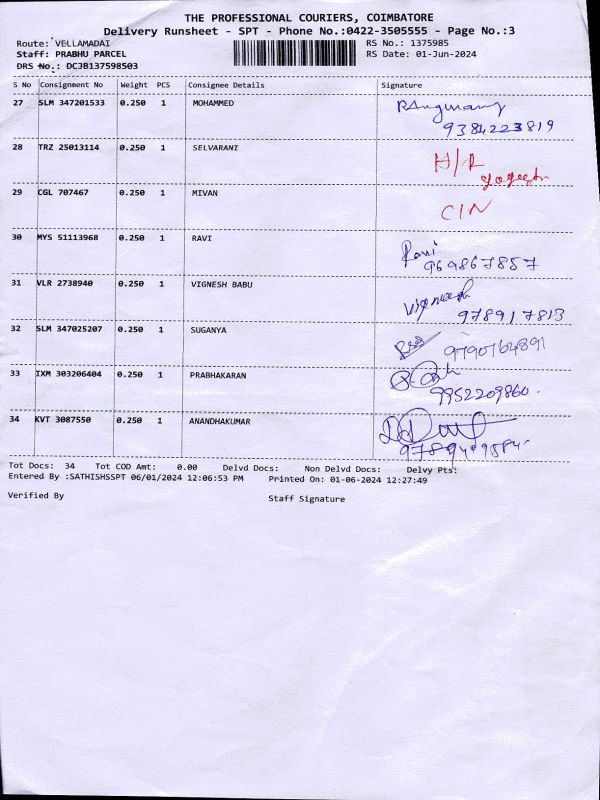 THE PROFESSIONAL COURIERS, COIMBATORE
Delivery Runsheet - SPT - Phone No.:0422-3505555 - Page No.:3
Route: VELLAMADAI RS No.: 1375985
Staff: PRABHU PARCEL RS Date: 01-Jun-2024
DRS No.: DCJB137598503
S No Consignment No Weight PCS Consignee Details Signature
27 SLM 347201533 0.250 1 MOHAMMED
9384223819
28 TRZ 25013114 0.250 1 SELVARANI H/R
29 CGL 707467 0.250 1 MIVAN CIN
30 MYS 51113968 0.250 1 RAVI Ravi
969867857
31 VLR 2738940 0.250 1 VIGNESH BABU Vignesh
978917813
32 SLM 347025207 0.250 1 SUGANYA 9790164891
33 IXM 303206404 0.250 1 PRABHAKARAN
9952209860
34 KVT 3087550 0.250 1 ANANDHAKUMAR
Tot Docs: 34 Tot COD Amt: 0.00 Delvd Docs: Non Delvd Docs: Delvy Pts:
Entered By :SATHISHSSPT 06/01/2024 12:06:53 PM Printed On: 01-06-2024 12:27:49
Verified By Staff Signature